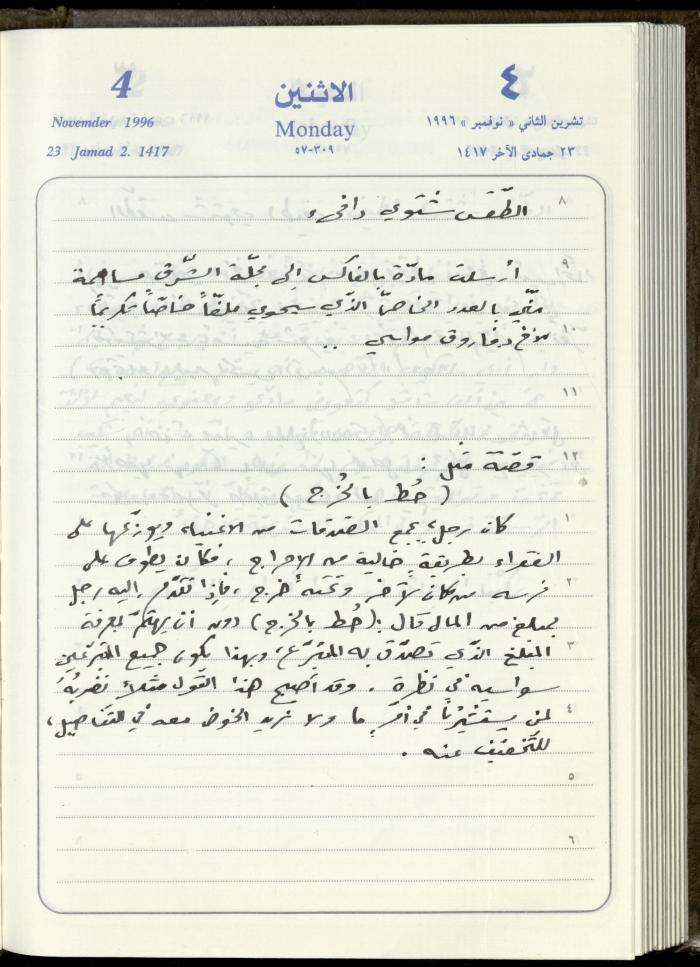 4
الاثنين
٤
Novemder 1996
Monday
تشرين الثاني « نوفمبر » ١٩٩٦
23 Jamad 2. 1417
٣٠٩-٥٧
٢٣ جمادى الآخر ١٤١٧
٨
الطّقس شتوي دافىء
٩
أرسلت مادّة بالفاكس إلى مجلّة الشّرق مساهمة
منّي بالعدد الخاصّ الذّي سيحوي ملفّاً خاصّاً تكريميّاً
١٠
للأخ د. فاروق مواسي ..
١١
١٢
قصّة مثل :
( حُط بالخُرج )
١
كان رجلٌ يجمع الصّدقات من الاغنياء ويوزّعها على
الفقراء بطريقةٍ خالية من الإحراج ، فكان يطوف على
٢
فرسه من مكان لآخر وتحته خُرج ، فإذا تقدّم إليه رجل
بمبلغ من المال قال : (حُط بالخرج) دون أن يهتمّ لمعرفة
٣
المبلغ الذّي تصدّق به المتبرّع، وبهذا يكون جميع المتبرّعين
سواسيه في نظرهِ . وقد أصبح هذا القول مثلاً نضربُهُ
٤
لمن يستشيرُنا في أمرٍ ما ولا نريد الخوض معه في التّفاصيل،
للتّخفيف عنه .
٥
٦